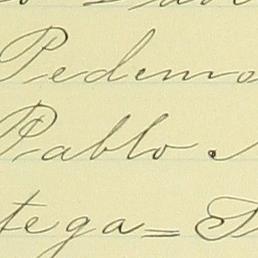 Pedemo
Pablo.
tega=